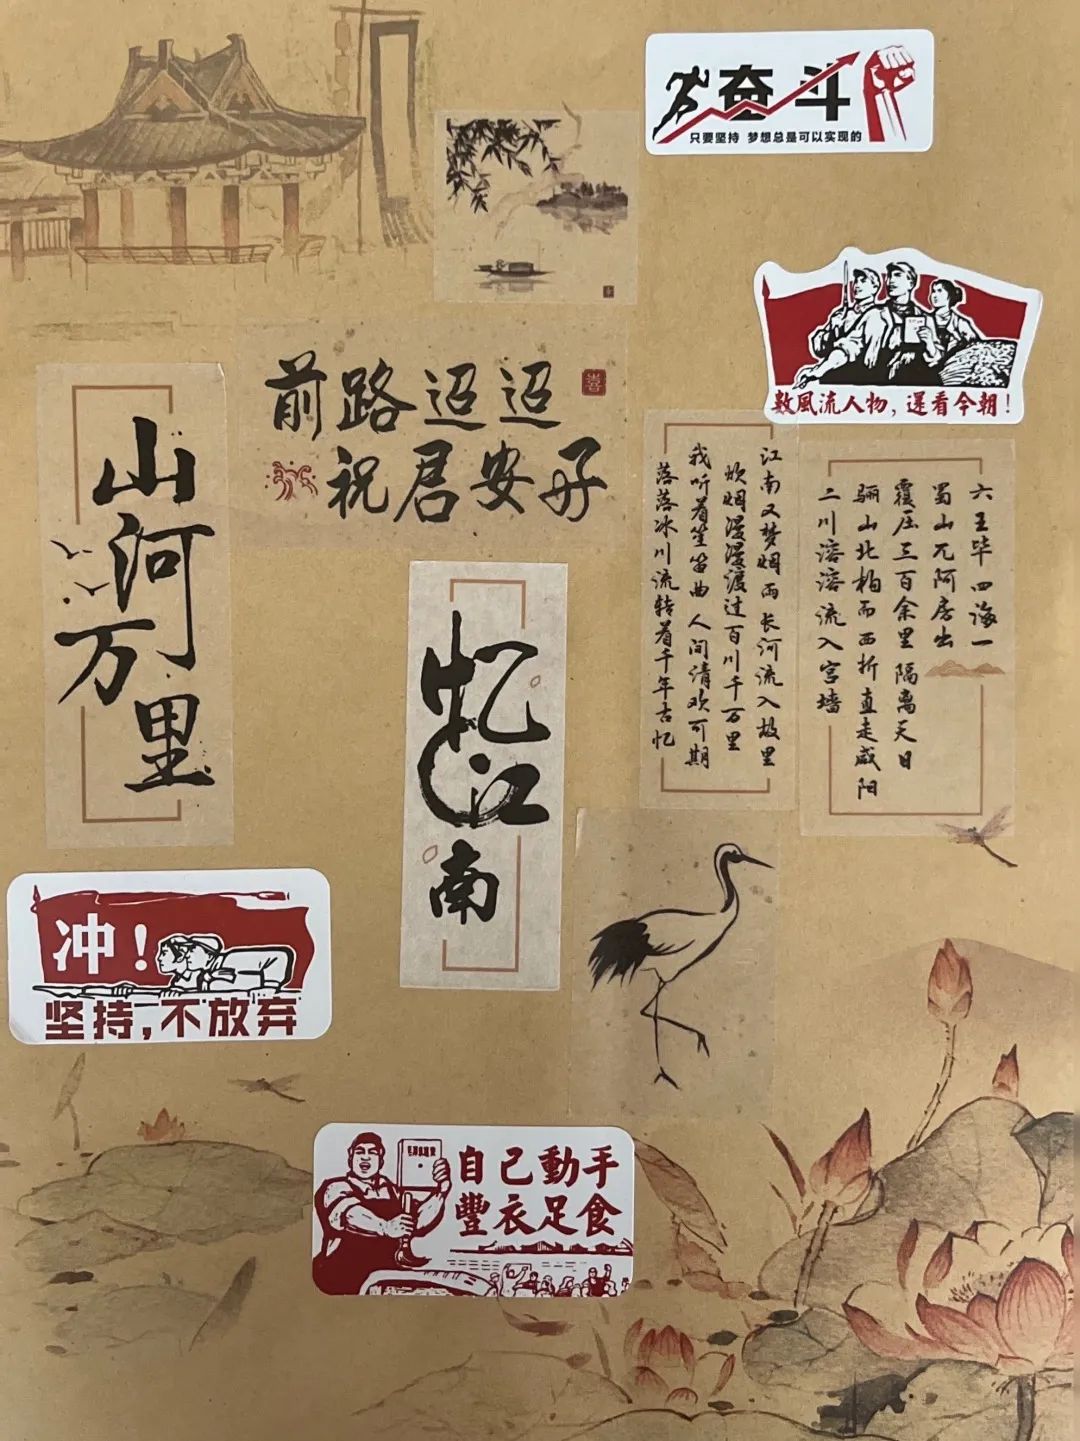 奋斗
只要坚持 梦想总是可以实现的
數風流人物，還看今朝！
前路迢迢
祝君安好
山河万里
忆江南
江南又梦烟雨 长河流入故里
炊烟漫漫渡过百川千万里
我听着笙笛曲 人间清欢可期
落落冰川流转着千年古忆
六王毕四海一
蜀山兀阿房出
覆压三百余里 隔离天日
骊山北构而西折直走咸阳
二川溶溶流入宫墙
冲！
坚持，不放弃
自己動手
豐衣足食